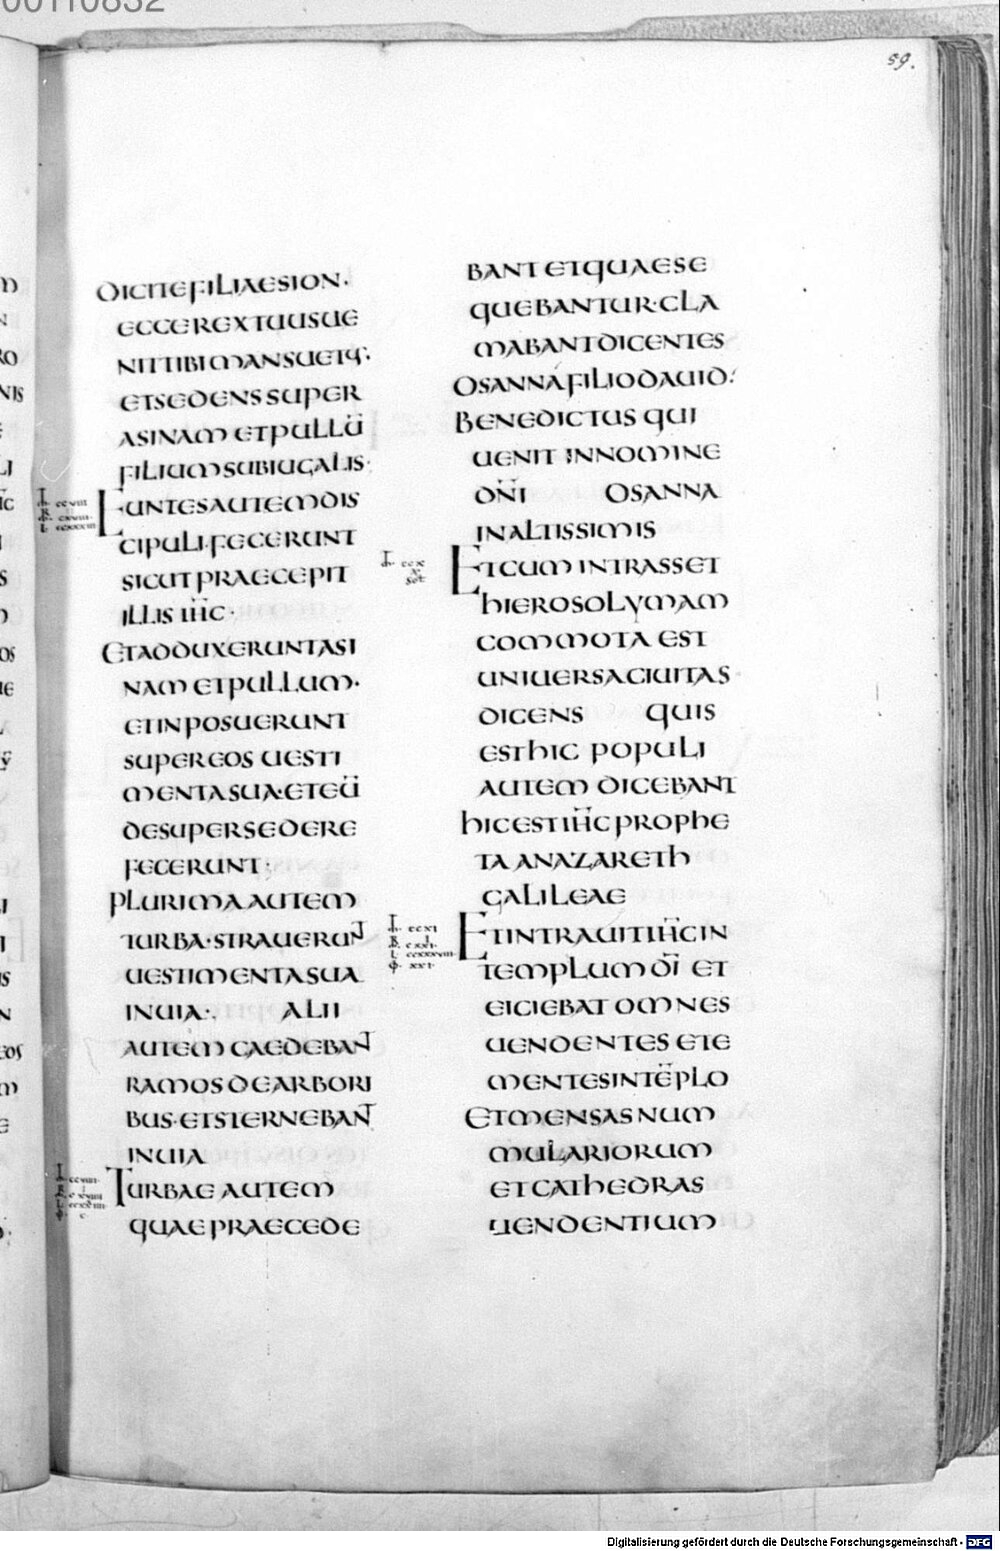 00110832
59.
DICITE FILIAE SION·
ECCE REX TUUS UE
NIT TIBI MANSUETUS·
ET SEDENS SUPER
ASINAM ET PULLŪ
FILIUM SUBIUGALIS·
EUNTES AUTEM DIS
CIPULI·FECERUNT
SICUT PRAECEPIT
ILLIS IH̄C·
ET ADDUXERUNT ASI
NAM ET PULLUM·
ET INPOSUERUNT
SUPER EOS UESTI
MENTA SUA·ET EŪ
DESUPER SEDERE
FECERUNT;
PLURIMA AUTEM
TURBA·STRAUERUNT
UESTIMENTA SUA
IN UIA· ALII
AUTEM CAEDEBANT
RAMOS DE ARBORI
BUS·ET STERNEBANT
IN UIA
TURBAE AUTEM
QUAE PRAECEDE
BANT ET QUAE SE
QUEBANTUR·CLA
MABANT DICENTES
OSANNA FILIO DAUID·
BENEDICTUS QUI
UENIT IN NOMINE
DN̄I OSANNA
IN ALTISSIMIS
ET CUM INTRASSET
HIEROSOLYMAM
COMMOTA EST
UNIUERSA CIUITAS
DICENS QUIS
EST HIC POPULI
AUTEM DICEBANT
HIC EST IH̄C PROPHE
TA A NAZARETH
GALILEAE
ET INTRAUIT IH̄C IN
TEMPLUM DĪ ET
EICIEBAT OMNES
UENDENTES ET E
MENTES IN TĒPLO
ET MENSAS NUM
MULARIORUM
ET CATHEDRAS
UENDENTIUM
Digitalisierung gefördert durch die Deutsche Forschungsgemeinschaft - DFG